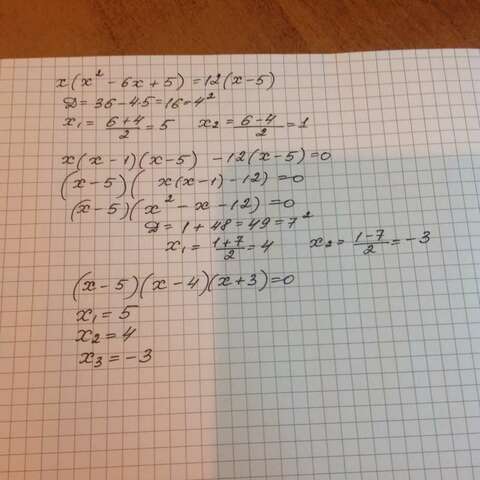 x(x² - 6x + 5) = 12(x - 5)
Д = 36 - 4·5 = 16 = 4²
x₁ = (6+4)/2 = 5 x₂ = (6-4)/2 = 1
x(x - 1)(x - 5) - 12(x - 5) = 0
(x - 5)( x(x - 1) - 12) = 0
(x - 5)(x² - x - 12) = 0
Д = 1 + 48 = 49 = 7²
x₁ = (1+7)/2 = 4 x₂ = (1-7)/2 = -3
(x - 5)(x - 4)(x + 3) = 0
x₁ = 5
x₂ = 4
x₃ = -3